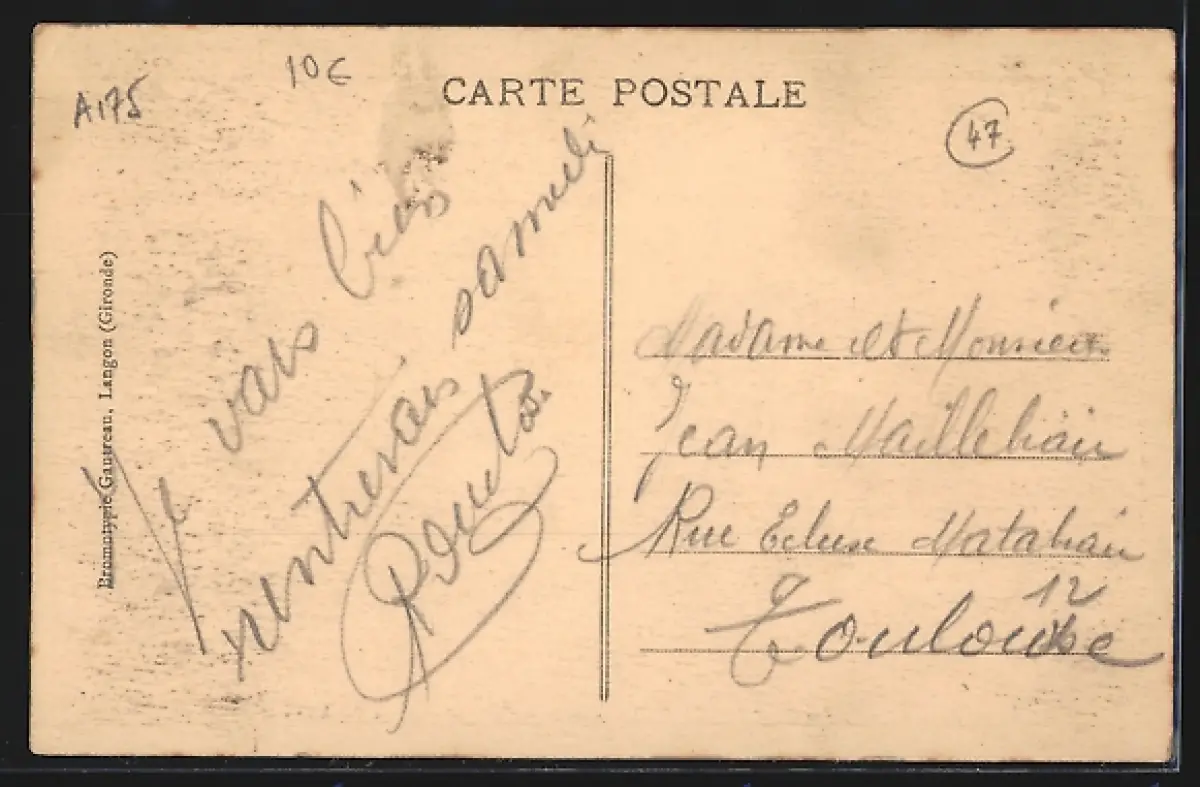 A175
10€
CARTE POSTALE
47
Bromotypie Gautreau, Langon (Gironde)
Je vais bien
rentrerais samedi
Madame et Monsieur
Jean
Rue Ecluse Matabiau
12
Toulouse